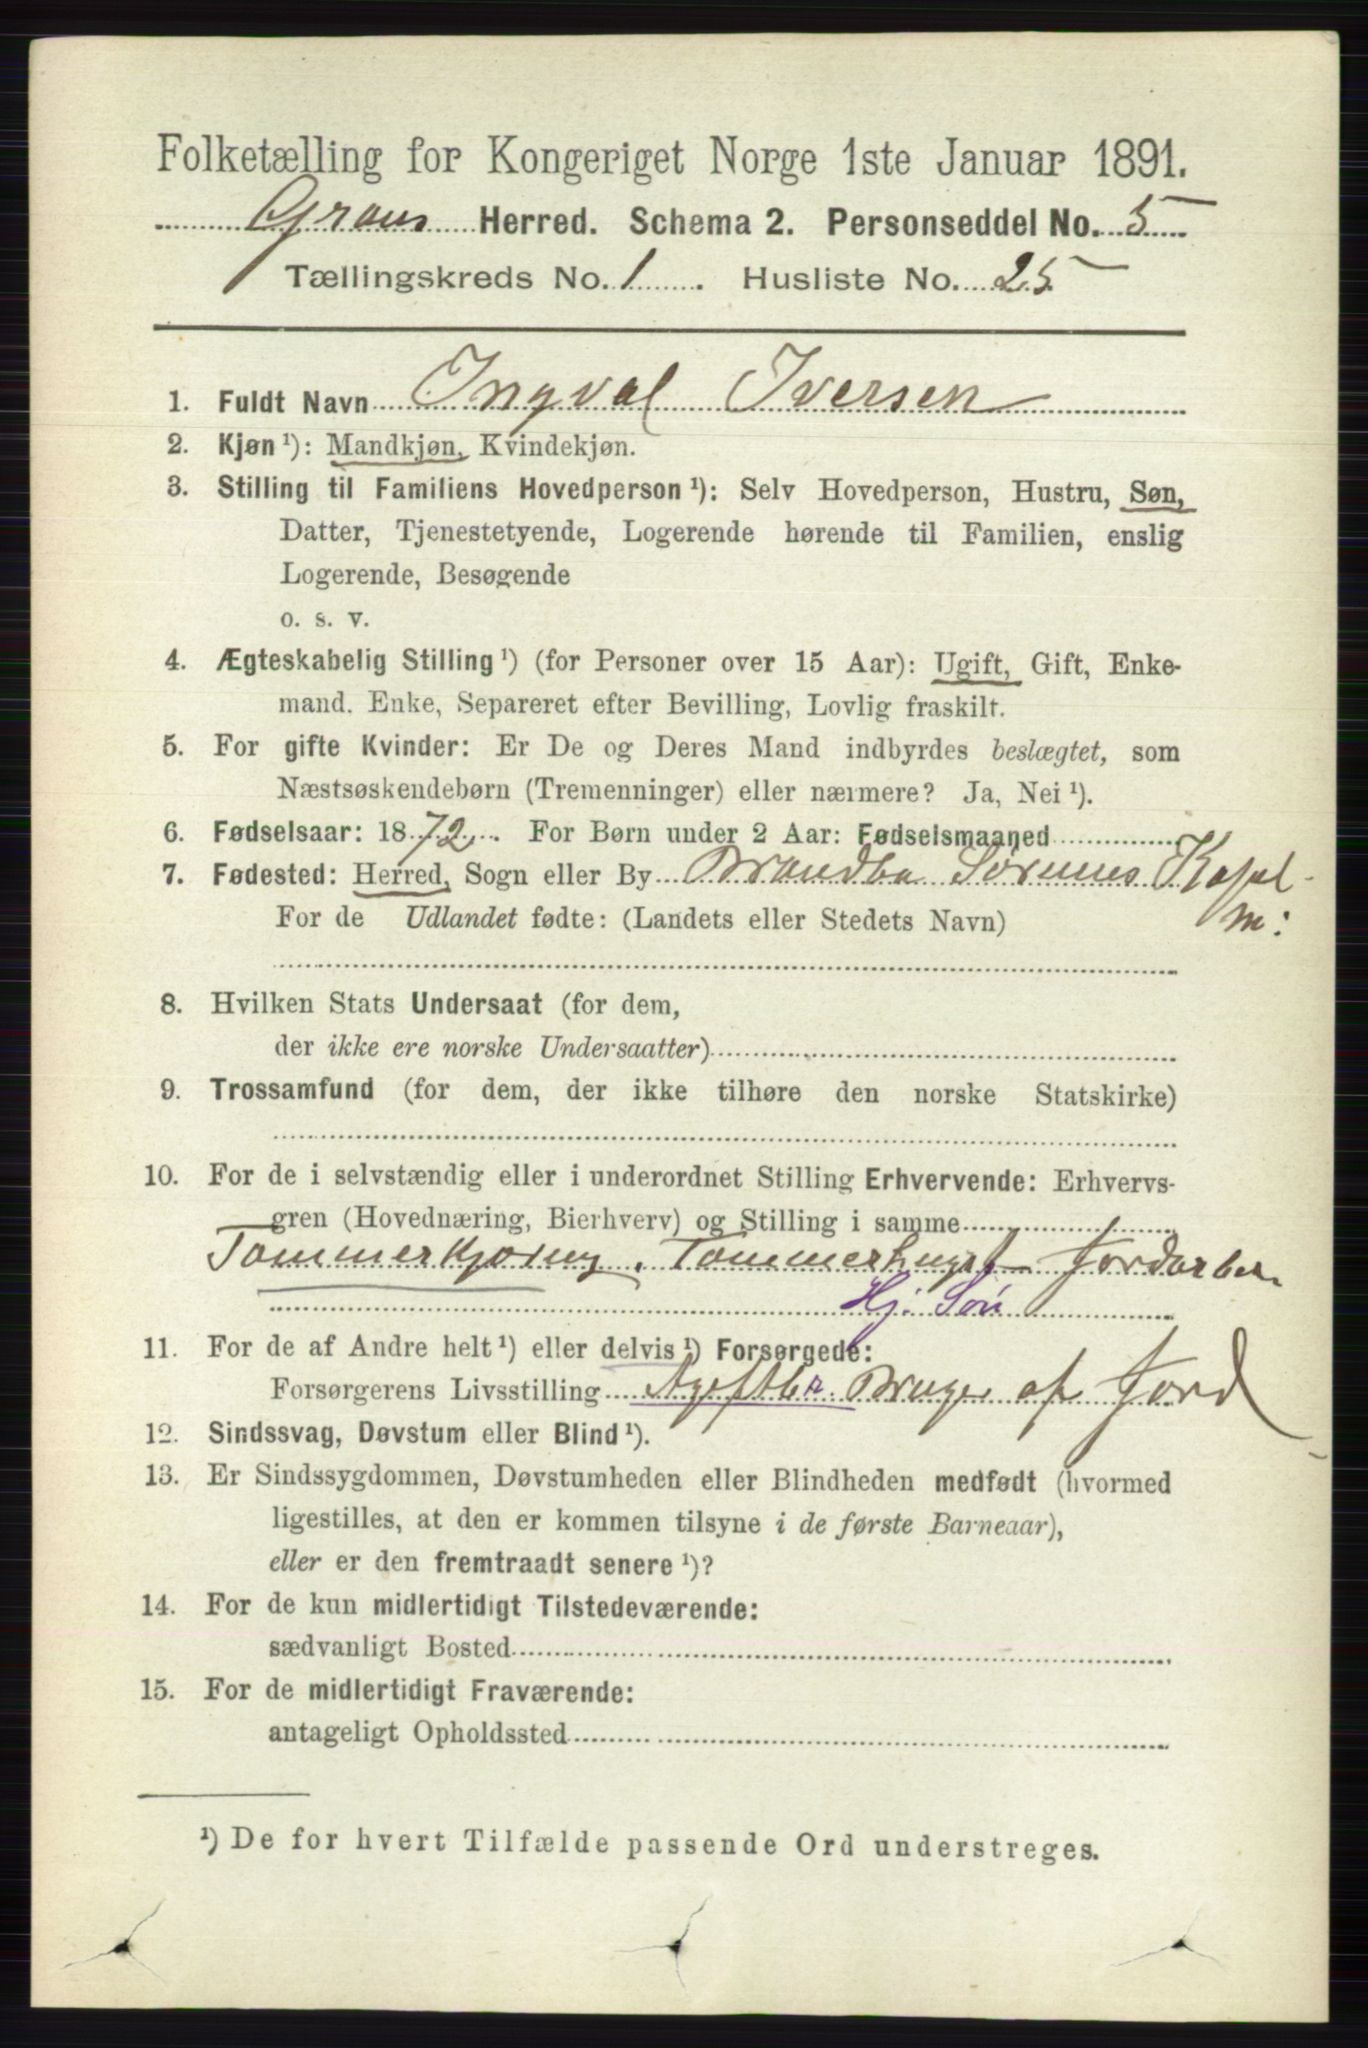 Folketælling for Kongeriget Norge 1ste Januar 1891.
Grans Herred. Schema 2. Personseddel No. 5
Tællingskreds No. 1. Husliste No. 25
1. Fuldt Navn Ingval Iversen
2. Kjøn ¹): Mandkjøn, Kvindekjøn.
3. Stilling til Familiens Hovedperson ¹): Selv Hovedperson, Hustru, Søn,
Datter, Tjenestetyende, Logerende hørende til Familien, enslig
Logerende, Besøgende
o. s. v.
4. Ægteskabelig Stilling ¹) (for Personer over 15 Aar): Ugift, Gift, Enke-
mand. Enke, Separeret efter Bevilling, Lovlig fraskilt.
5. For gifte Kvinder: Er De og Deres Mand indbyrdes beslægtet, som
Næstsøskendebørn (Tremenninger) eller nærmere? Ja, Nei ¹).
6. Fødselsaar: 1872. For Børn under 2 Aar: Fødselsmaaned
7. Fødested: Herred, Sogn eller By Brandbu Sørums Kapel
m:
For de Udlandet fødte: (Landets eller Stedets Navn)
8. Hvilken Stats Undersaat (for dem,
der ikke ere norske Undersaatter)
9. Trossamfund (for dem, der ikke tilhøre den norske Statskirke)
10. For de i selvstændig eller i underordnet Stilling Erhvervende: Erhvervs-
gren (Hovednæring, Bierhverv) og Stilling i samme
Tømmerkjøring, Tømmerhugst Jordarbei.
Hj. Søn
11. For de af Andre helt ¹) eller delvis ¹) Forsørgede:
Forsørgerens Livsstilling Bruger af Jord
12. Sindssvag, Døvstum eller Blind ¹).
13. Er Sindssygdommen, Døvstumheden eller Blindheden medfødt (hvormed
ligestilles, at den er kommen tilsyne i de første Barneaar),
eller er den fremtraadt senere ¹)?
14. For de kun midlertidigt Tilstedeværende:
sædvanligt Bosted
15. For de midlertidigt Fraværende:
antageligt Opholdssted
¹) De for hvert Tilfælde passende Ord understreges.